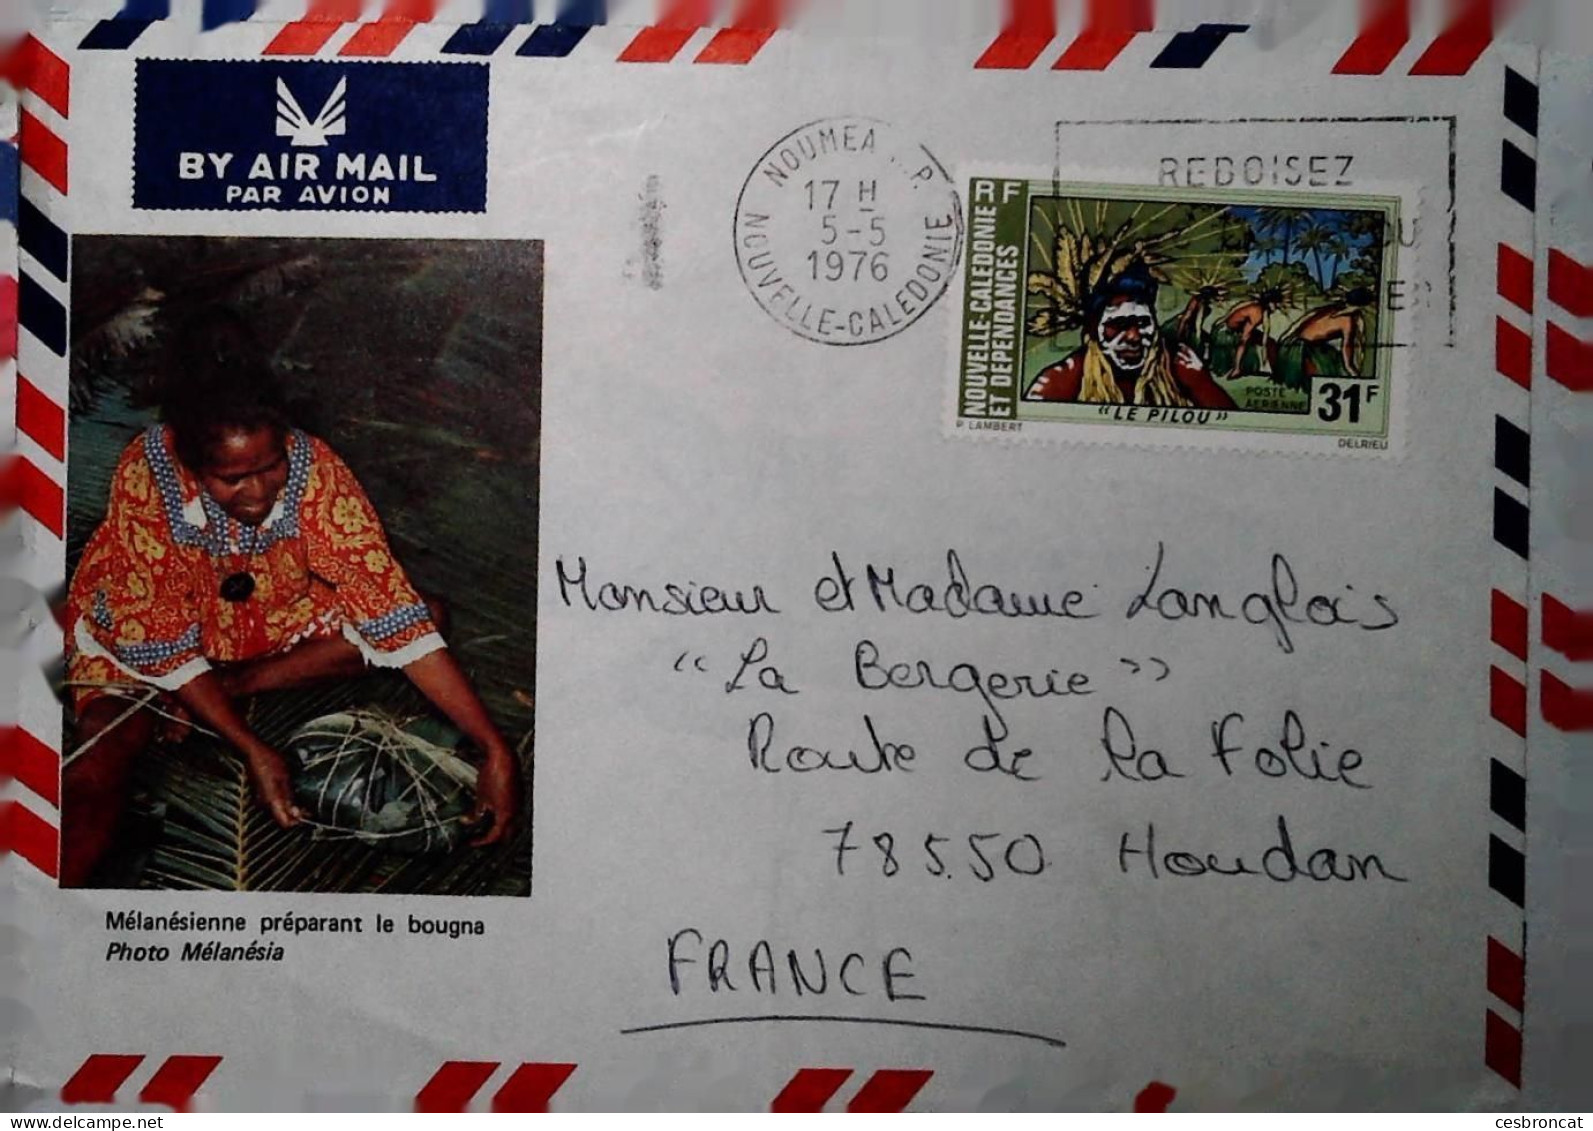 BY AIR MAIL
PAR AVION
NOUMEA P.
17 H
5-5
1976
NOUVELLE-CALEDONIE
REBOISEZ
RF
NOUVELLE-CALEDONIE
ET DEPENDANCES
"LE PILOU"
POSTE
AERIENNE
31F
P. LAMBERT
DELRIEU
Monsieur et Madame Langlois
"La Bergerie"
Route de la Folie
78550 Houdan
FRANCE
Mélanésienne préparant le bougna
Photo Mélanésia
cesbroncat